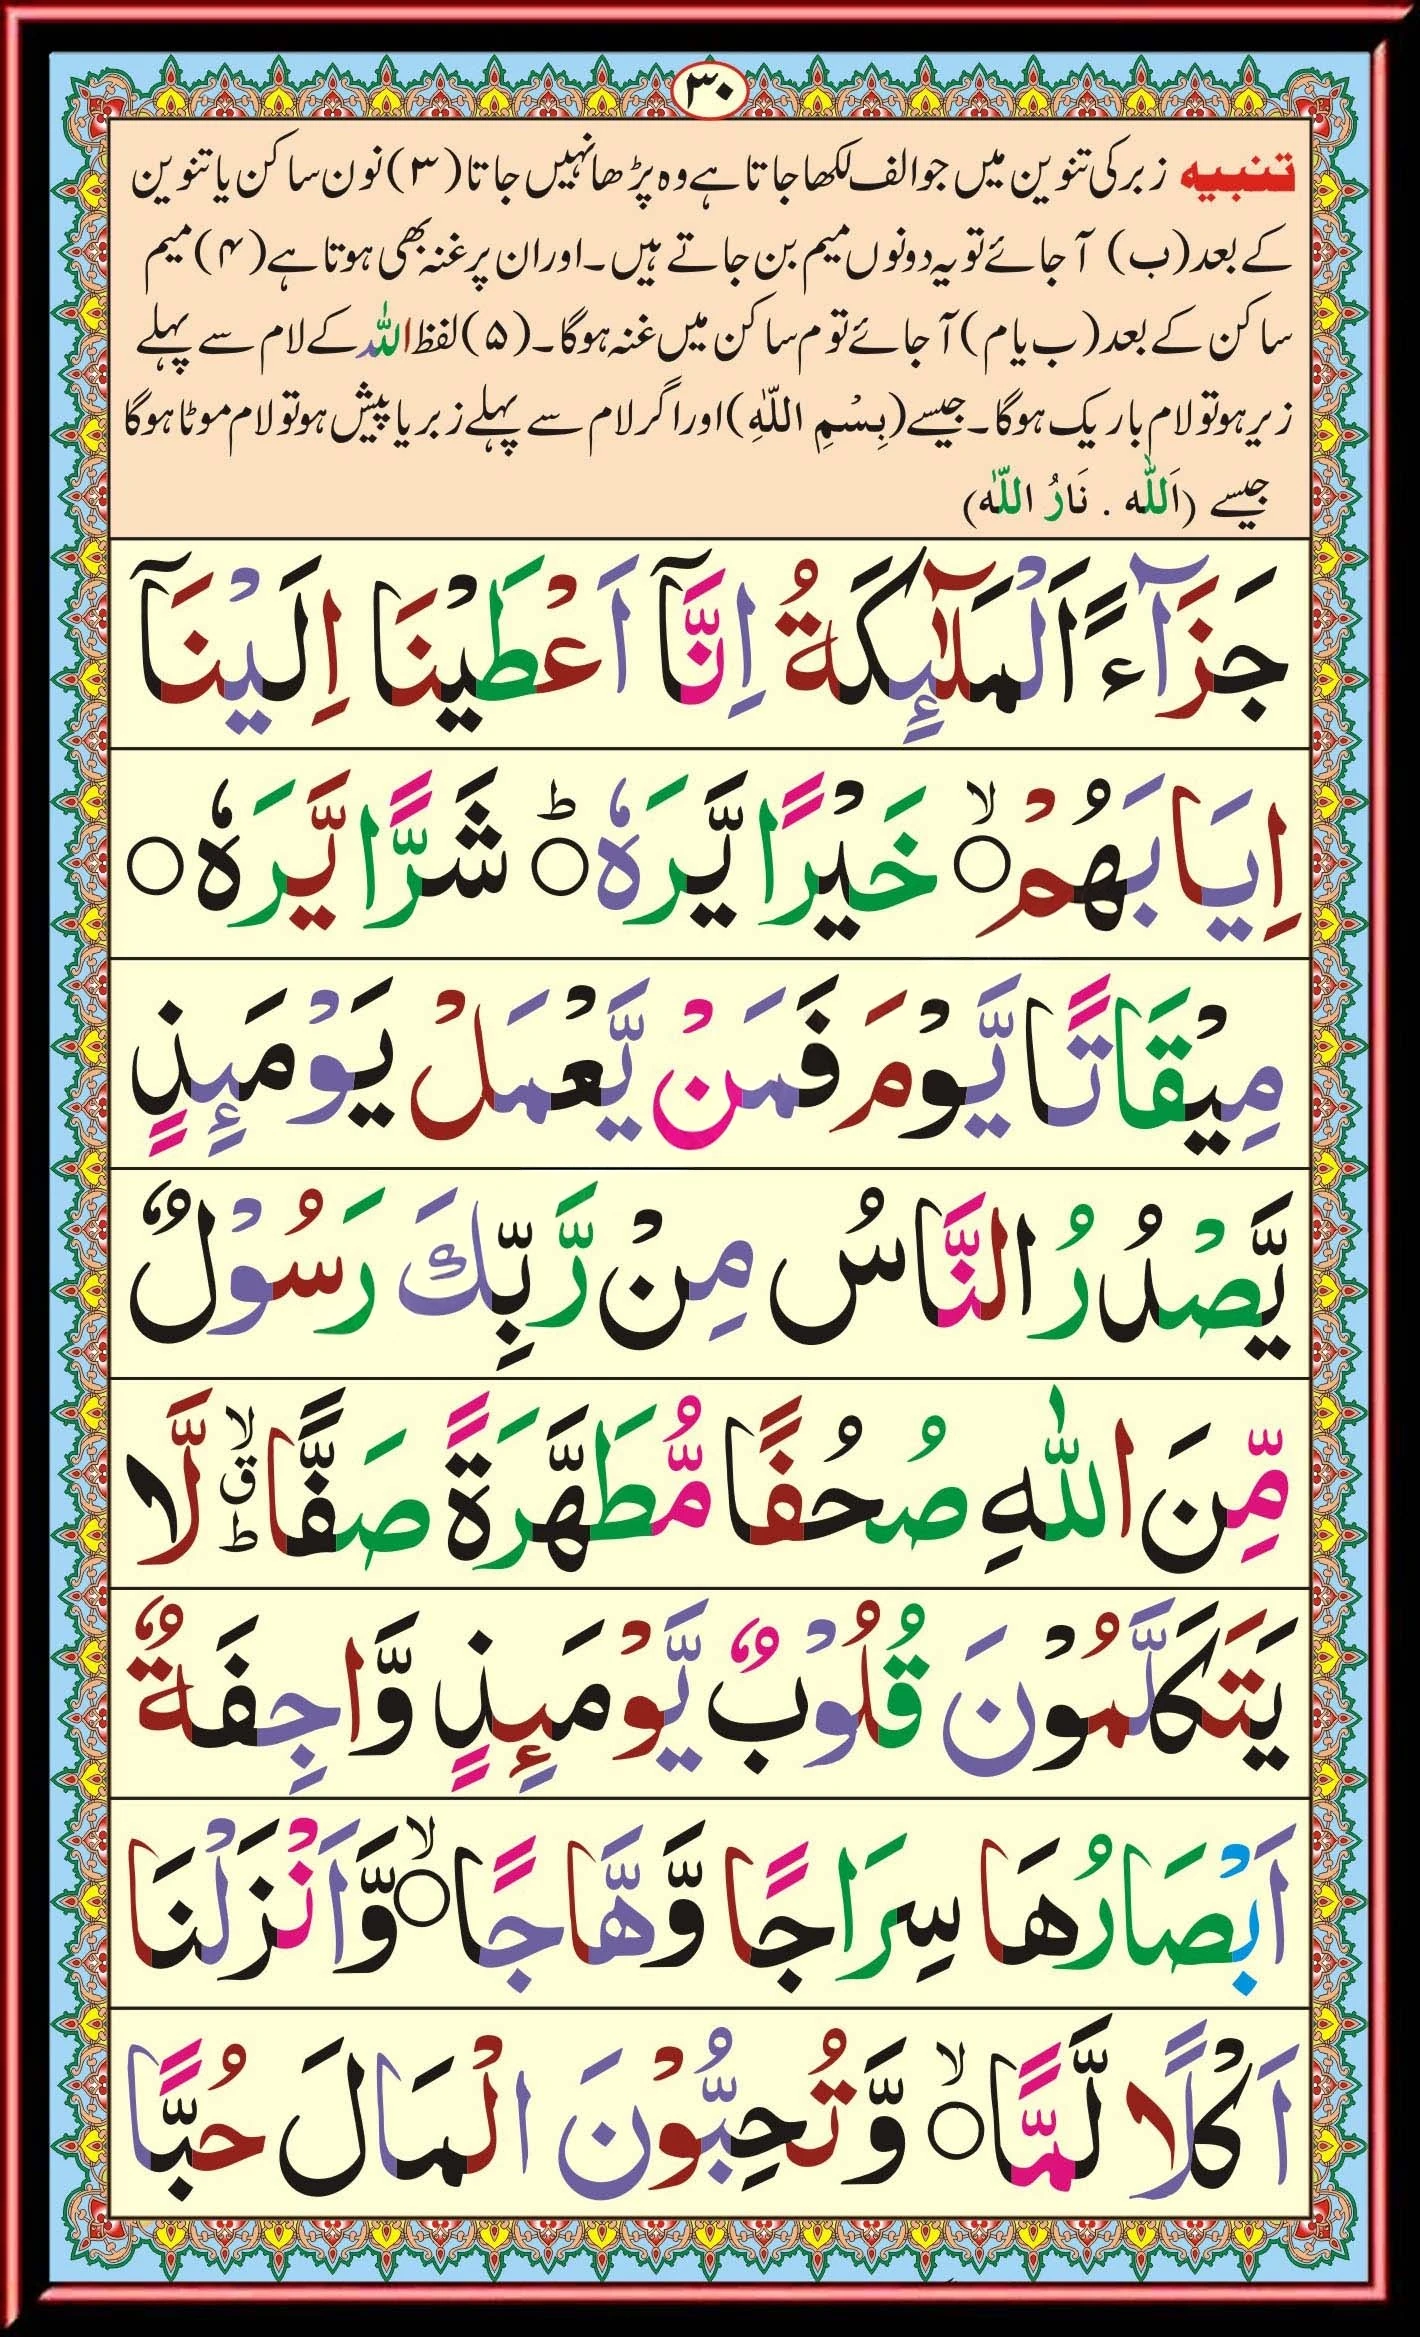 ۳۰
تنبیہ زبر کی تنوین میں جو الف لکھا جاتا ہے وہ پڑھا نہیں جاتا (۳) نون ساکن یا تنوین
کے بعد (ب) آ جائے تو یہ دونوں میم بن جاتے ہیں۔ اور ان پر غنہ بھی ہوتا ہے (۴) میم
ساکن کے بعد (ب یا م) آ جائے تو م ساکن میں غنہ ہوگا۔ (۵) لفظ اللہ کے لام سے پہلے
زیر ہو تو لام باریک ہوگا۔ جیسے (بِسْمِ اللّٰهِ) اور اگر لام سے پہلے زبر یا پیش ہو تو لام موٹا ہوگا
جیسے (اَللّٰه . نَارُ اللّٰه)
جَزَآءً اَلْمَلٰٓئِكَةُ اِنَّآ اَعْطَيْنَا اِلَيْنَآ
اِيَابَهُمْ ۙ○ خَيْرًا يَّرَهٗ ○ؕ شَرًّا يَّرَهٗ ○
مِيْقَاتًا يَّوْمَ فَمَنْ يَّعْمَلْ يَوْمَئِذٍ
يَّصْدُرُ النَّاسُ مِنْ رَّبِّكَ رَسُوْلٌ
مِّنَ اللّٰهِ صُحُفًا مُّطَهَّرَةً صَفًّا ۙ ق ط لَّا
يَتَكَلَّمُوْنَ قُلُوْبٌ يَّوْمَئِذٍ وَّاجِفَةٌ
اَبْصَارُهَا سِرَاجًا وَّهَّاجًا ۙ○ وَّاَنْزَلْنَا
اَكْلًا لَّمًّا ۙ○ وَّتُحِبُّوْنَ الْمَالَ حُبًّا